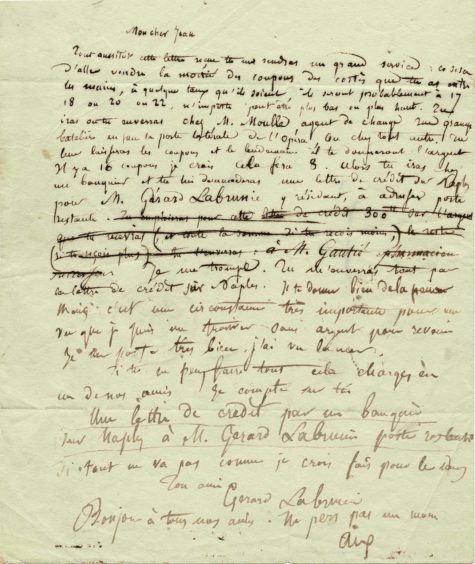 Mon cher Jean
Tout aussitôt cette lettre reçue tu me rendras un grand service : ce sera
d'aller vendre la moitié des coupons des cortès que tu as entre
les mains, à quelque taux qu'ils soient, ils seront probablement à 17
18 ou 20 ou 22, n'importe peut-être plus bas ou plus haut. Tu
iras ou tu enverras chez M. Moulle agent de change rue Grange
batelière ou la porte latérale de l'Opéra. Ou chez tout autre, tu
leur laisseras les coupons et le lendemain il te donneront l'argent
Il y a 16 coupons je crois cela fera 8. alors tu iras chez
un banquier et tu lui demanderas une lettre de crédit sur Naples
pour M. Gérard Labrunie y résidant, à adresser poste
restante. Tu emploieras pour cette lettre de crédit 300 sur l'argent
que tu recevras (et toute la somme si tu reçois moins) le reste
à M. Gautié
Je me trompe. Tu m'enverras tout par
la lettre de crédit sur Naples. Je te donne bien de la peine
mais c'est une circonstance très importante pour moi
vu que je puis me trouver sans argent pour revenir
Je me porte très bien, j'ai vu la mer.
Si tu ne peux faire tout cela charges en
un de nos amis Je compte sur toi
Une lettre de crédit par un banquier
sur Naples à M. Gérard Labrunie poste restante
Si tout ne va pas comme je crois fais pour le mieux
Ton ami
Gérard Labrunie
Bonjour à tous nos amis. Ne perds pas un moment